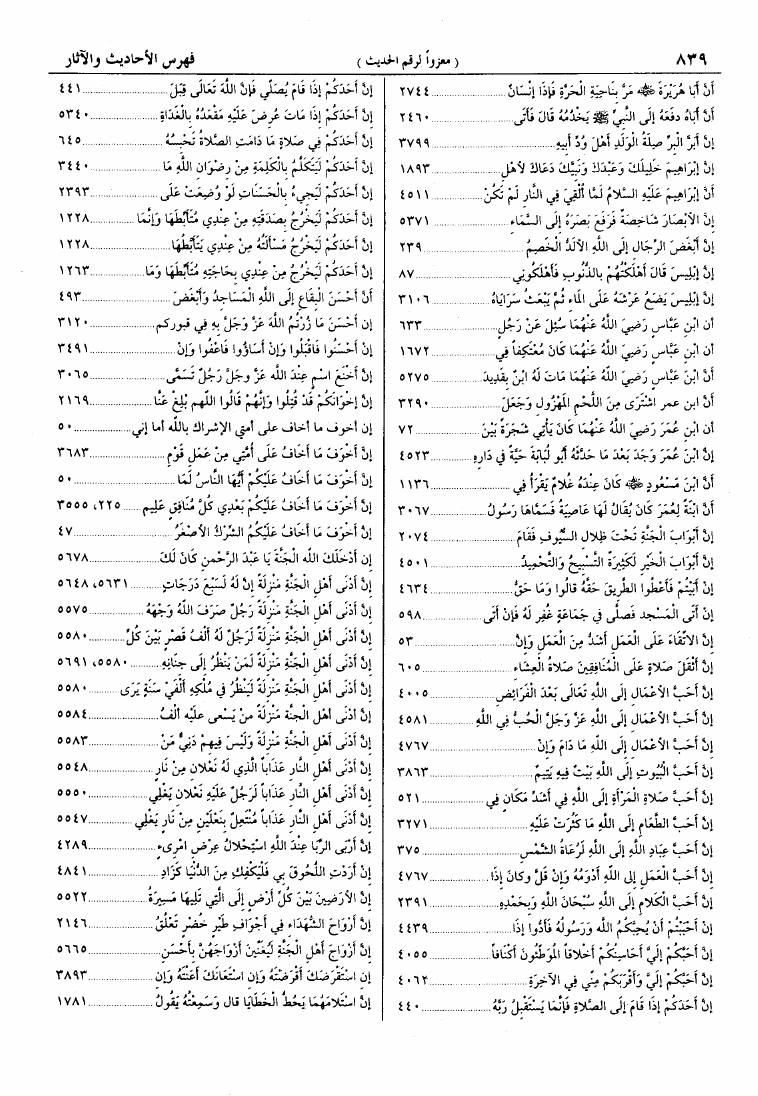 ٨٣٩
( معزواً لرقم الحديث )
فهرس الأحاديث والآثار
أَنَّ أَبَا هُرَيْرَةَ ﵁ مَرَّ بِنَاحِيَةِ الْحَرَّةِ فَإِذَا إِنْسَانٌ ٢٧٤٤
أَنَّ أَبَاهُ دَفَعَهُ إِلَى النَّبِيِّ ﷺ يَخْدُمُهُ قَالَ فَأَتَى ٢٤٦٠
إِنَّ أَبَرَّ الْبِرِّ صِلَةُ الْوَلَدِ أَهْلَ وُدِّ أَبِيهِ ٣٧٩٩
إِنَّ إِبْرَاهِيمَ خَلِيلَكَ وَعَبْدَكَ وَنَبِيَّكَ دَعَاكَ لأهْلِ ١٨٩٣
أَنَّ إِبْرَاهِيمَ عَلَيْهِ السَّلامُ لَمَّا أُلْقِيَ فِي النَّارِ لَمْ تَكُنْ ٤٥١١
إِنَّ الأَبْصَارَ شَاخِصَةٌ فَرَفَعَ بَصَرَهُ إِلَى السَّمَاءِ ٥٣٧١
إِنَّ أَبْغَضَ الرِّجَالِ إِلَى اللَّهِ الأَلَدُّ الْخَصِمُ ٢٣٩
إِنَّ إِبْلِيسَ قَالَ أَهْلَكْتُهُمْ بِالذُّنُوبِ فَأَهْلَكُونِي ٨٧
إِنَّ إِبْلِيسَ يَضَعُ عَرْشَهُ عَلَى الْمَاءِ ثُمَّ يَبْعَثُ سَرَايَاهُ ٣١٠٦
أن ابْنَ عَبَّاسٍ رَضِيَ اللَّهُ عَنْهُمَا سُئِلَ عَنْ رَجُلٍ ٦٣٣
أن ابْنَ عَبَّاسٍ رَضِيَ اللَّهُ عَنْهُمَا كَانَ مُعْتَكِفاً فِي ١٦٧٢
أَنَّ ابْنَ عَبَّاسٍ رَضِيَ اللَّهُ عَنْهُمَا مَاتَ لَهُ ابْنٌ بِقَدِيدَ ٥٢٧٥
أَنَّ ابن عمر اشْتَرَى مِنَ اللَّحْمِ الْمَهْزُولِ وَجَعَلَ ٣٢٩٠
أن ابْنَ عُمَرَ رَضِيَ اللَّهُ عَنْهُمَا كَانَ يَأْتِي شَجَرَةً بَيْنَ ٧٢
إِنَّ ابْنَ عُمَرَ وَجَدَ بَعْدَ مَا حَدَّثَهُ أَبُو لُبَابَةَ حَيَّةً فِي دَارِهِ ٤٥٢٣
أَنَّ ابْنَ مَسْعُودٍ ﵁ كَانَ عِنْدَهُ غُلامٌ يَقْرَأُ فِي ١١٣٦
أَنَّ ابْنَةً لِعُمَرَ كَانَ يُقَالُ لَهَا عَاصِيَةُ فَسَمَّاهَا رَسُولُ ٣٠٦٧
إِنَّ أَبْوَابَ الْجَنَّةِ تَحْتَ ظِلالِ السُّيُوفِ فَقَامَ ٢٠٧٤
إِنَّ أَبْوَابَ الْخَيْرِ لَكَثِيرَةٌ التَّسْبِيحُ وَالتَّحْمِيدُ ٤٥٠١
إِنْ أَبَيْتُمْ فَأَعْطُوا الطَّرِيقَ حَقَّهُ قَالُوا وَمَا حَقُّ ٤٦٣٤
إِنْ أَتَى الْمَسْجِدَ فَصَلَّى فِي جَمَاعَةٍ غُفِرَ لَهُ فَإِنْ أَتَى ٥٩٨
إِنَّ الاتِّقَاءَ عَلَى الْعَمَلِ أَشَدُّ مِنَ الْعَمَلِ وَإِنَّ ٥٣
إِنَّ أَثْقَلَ صَلاةٍ عَلَى الْمُنَافِقِينَ صَلاةُ الْعِشَاءِ ٦٠٥
إِنَّ أَحَبَّ الأَعْمَالِ إِلَى اللَّهِ تَعَالَى بَعْدَ الْفَرَائِضِ ٤٠٠٥
إِنَّ أَحَبَّ الأَعْمَالِ إِلَى اللَّهِ عَزَّ وَجَلَّ الْحُبُّ فِي اللَّهِ ٤٥٨١
إِنَّ أَحَبَّ الأَعْمَالِ إِلَى اللَّهِ مَا دَامَ وَإِنْ ٤٧٦٧
إِنَّ أَحَبَّ الْبُيُوتِ إِلَى اللَّهِ بَيْتٌ فِيهِ يَتِيمٌ ٣٨٦٣
إِنَّ أَحَبَّ صَلاةِ الْمَرْأَةِ إِلَى اللَّهِ فِي أَشَدِّ مَكَانٍ فِي ٥٢١
إِنَّ أَحَبَّ الطَّعَامِ إِلَى اللَّهِ مَا كَثُرَتْ عَلَيْهِ ٣٢٧١
إِنَّ أَحَبَّ عِبَادِ اللَّهِ إِلَى اللَّهِ لَرُعَاةُ الشَّمْسِ ٣٧٥
إِنَّ أَحَبَّ الْعَمَلِ إِلى اللَّهِ أَدْوَمُهُ وَإِنْ قَلَّ وكانَ إِذَا ٤٧٦٧
إِنَّ أَحَبَّ الْكَلامِ إِلَى اللَّهِ سُبْحَانَ اللَّهِ وَبِحَمْدِهِ ٢٣٩١
إِنْ أَحْبَبْتُمْ أَنْ يُحِبَّكُمُ اللَّه وَرَسُولُهُ فَأَدُّوا إِذَا ٤٤٣٩
إِنَّ أَحَبَّكُمْ إِلَيَّ أَحَاسِنُكُمْ أَخْلاقاً الْمُوَطَّئُونَ أَكْنَافاً ٤٠٥٥
إِنَّ أَحَبَّكُمْ إِلَيَّ وَأَقْرَبَكُمْ مِنِّي فِي الآخِرَةِ ٤٠٦٢
إِنَّ أَحَدَكُمْ إِذَا قَامَ إِلَى الصَّلاةِ فَإِنَّمَا يَسْتَقْبِلُ رَبَّهُ ٤٤٠
إِنَّ أَحَدَكُمْ إِذَا قَامَ يُصَلِّي فَإِنَّ اللَّهَ تَعَالَى قِبَلَ ٤٤١
إِنَّ أَحَدَكُمْ إِذَا مَاتَ عُرِضَ عَلَيْهِ مَقْعَدُهُ بِالْغَدَاةِ ٥٣٤٠
إِنَّ أَحَدَكُمْ فِي صَلاةٍ مَا دَامَتِ الصَّلاةُ تَحْبِسُهُ ٦٤٥
إِنَّ أَحَدَكُمْ لَيَتَكَلَّمُ بِالْكَلِمَةِ مِنْ رِضْوَانِ اللَّهِ مَا ٣٤٤٠
إِنَّ أَحَدَكُمْ لَيَجِيءُ بِالْحَسَنَاتِ لَوْ وُضِعَتْ عَلَى ٢٣٩٣
إِنَّ أَحَدَكُمْ لَيَخْرُجُ بِصَدَقَتِهِ مِنْ عِنْدِي مُتَأَبِّطَهَا وَإِنَّمَا ١٢٢٨
إِنَّ أَحَدَكُمْ لَيَخْرُجُ مَسْأَلَتُهُ مِنْ عِنْدِي يَتَأَبَّطُهَا ١٢٢٨
إِنَّ أَحَدَكُمْ لَيَخْرُجُ مِنْ عِنْدِي بِحَاجَتِهِ مُتَأَبِّطَهَا وَمَا ١٢٦٣
أَنَّ أَحْسَنَ الْبِقَاعِ إِلَى اللَّهِ الْمَسَاجِدُ وَأَبْغَضَ ٤٩٣
إن أحْسَنَ مَا زُرْتُمُ اللَّهَ عَزَّ وَجَلَّ بِهِ فِي قبوركم ٣١٢٠
إِنْ أَحْسَنُوا فَاقْبَلُوا وَإِنْ أَسَاؤُوا فَاعْفُوا وَإِنْ ٣٤٩١
إِنَّ أَخْنَعَ اسْمٍ عِنْدَ اللَّه عَزَّ وجَلَّ رَجُلٌ تَسَمَّى ٣٠٦٥
إِنَّ إِخْوَانَكُمْ قَدْ قُتِلُوا وَإِنَّهُمْ قَالُوا اللَّهم بَلِّغْ عَنَّا ٢١٦٩
إن أخوف ما أخاف على أمتي الإشراك بالله أما إني ٥٠
إِنَّ أَخْوَفَ مَا أَخَافُ عَلَى أُمَّتِي مِنْ عَمَلِ قَوْمِ ٣٦٨٣
إِنَّ أَخْوَفَ مَا أَخَافُ عَلَيْكُمْ أَيُّهَا النَّاسُ لَمَا ٥٠
إِنَّ أَخْوَفَ مَا أَخَافُ عَلَيْكُمْ بَعْدِي كُلُّ مُنَافِقٍ عَلِيمِ ٢٢٥، ٣٥٥٥
إِنَّ أَخْوَفَ مَا أَخَافُ عَلَيْكُمُ الشِّرْكُ الأَصْغَرُ ٤٧
إِن أدْخَلَكَ اللَّه الْجَنَّةَ يَا عَبْدَ الرَّحْمنِ كَانَ لَكَ ٥٦٧٨
إِنَّ أَدْنَى أَهْلِ الْجَنَّةِ مَنْزِلَةً إِنَّ لَهُ لَسَبْعَ دَرَجَاتٍ ٥٦٣١، ٥٦٤٨
إِنَّ أَدْنَى أَهْلِ الْجَنَّةِ مَنْزِلَةً رَجُلٌ صَرَفَ اللَّهُ وَجْهَهُ ٥٥٧٥
إِنَّ أَدْنَى أَهْلِ الْجَنَّةِ مَنْزِلَةً لَرَجُلٌ لَهُ أَلْفُ قَصْرٍ بَيْنَ كُلِّ ٥٥٨٠
إِنَّ أَدْنَى أَهْلِ الْجَنَّةِ مَنْزِلَةً لَمَنْ يَنْظُرُ إِلَى جِنَانِهِ ٥٥٨٠، ٥٦٩١
إِنَّ أَدْنَى أَهْلِ الْجَنَّةِ مَنْزِلَةً لَيَنْظُرُ فِي مُلْكِهِ أَلْفَيْ سَنَةٍ يَرَى ٥٥٨٠
إِنَّ أَدْنَى أهل الجنة مَنْزِلَةً مَن يَسْعى عليْه ألفُ ٥٥٨٤
إِنَّ أَدْنَى أَهْلِ الْجَنَّةِ مَنْزِلَةً وَلَيْسَ فِيهِمْ دَنِيٌّ مَنْ ٥٥٨٣
إِنَّ أَدْنَى أَهْلِ النَّارِ عَذَاباً الَّذِي لَهُ نَعْلانِ مِنْ نَارٍ ٥٥٤٨
إِنَّ أَدْنَى أَهْلِ النَّارِ عَذَاباً لَرَجُلٌ عَلَيْهِ نَعْلانِ يَغْلِي ٥٥٥٠
إِنَّ أَدْنَى أَهْلِ النَّارِ عَذَاباً مُنْتَعِلٌ بِنَعْلَيْنِ مِنْ نَارٍ يَغْلِي ٥٥٤٧
إِنَّ أَرْبَى الرِّبَا عِنْدَ اللَّهِ اسْتِحْلالُ عِرْضِ امْرِىءٍ ٤٢٨٩
إِنْ أَرَدْتِ اللُّحُوقَ بِي فَلْيَكْفِكِ مِنَ الدُّنْيَا كَزَادِ ٤٨٤١
إِنَّ الأَرَضِينَ بَيْنَ كُلِّ أَرْضٍ إِلَى الَّتِي تَلِيهَا مَسِيرَةُ ٥٥٢٢
إِنَّ أَرْوَاحَ الشُّهَدَاءِ فِي أَجْوَافِ طَيْرٍ خُضْرٍ تَعْلُقُ ٢١٤٦
إِنَّ أَزْوَاجَ أَهْلِ الْجَنَّةِ لَيُغَنِّينَ أَزْوَاجَهُنَّ بِأَحْسَنِ ٥٦٦٥
إن اسْتَقْرَضَكَ أَقْرَضْتَهُ وَإِن اسْتَعَانَكَ أَعَنْتَهُ وَإن ٣٨٩٣
إِنَّ اسْتِلامَهُمَا يَحُطُّ الْخَطَايَا قال وَسَمِعْتُهُ يَقُولُ ١٧٨١